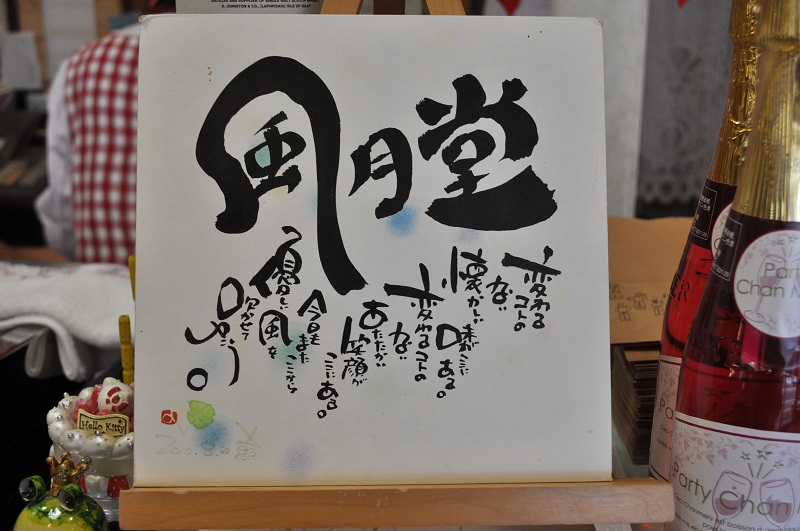 D. JOHNSTON & CO., (LAPHROAIG) ISLE OF ISLAY
風月堂
変わる
コトの
ない
懐かしい
味がここに
ある。
変わる
コトの
ない
あたたかい
笑顔が
ここにある。
今日も
また
ここから
優しい
風を
吹かせて
Hello Kitty
Party
Chan M
Party Chan